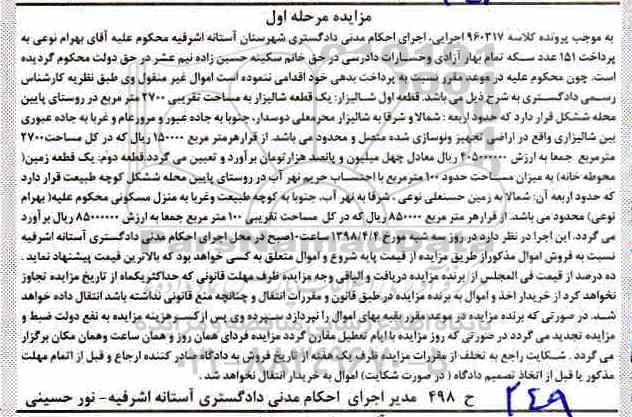 مزایده مرحله اول
به موجب پرونده کلاسه ۹۶۰۳۱۷ اجرایی، اجرای احکام مدنی دادگستری شهرستان آستانه اشرفیه محکوم علیه آقای بهرام نوعی به
پرداخت ۱۵۱ عدد سکه تمام بهار آزادی وخسارات دادرسی در حق خانم سکینه حسین زاده نیم عشر در حق دولت محکوم گردیده
است. چون محکوم علیه در موعد مقرر نسبت به پرداخت بدهی خود اقدامی ننموده است اموال غیر منقول وی طبق نظریه کارشناس
رسمی دادگستری به شرح ذیل می باشد. قطعه اول شالیزار: یک قطعه شالیزار به مساحت تقریبی ۲۷۰۰ متر مربع در روستای پایین
محله ششکل قرار دارد که حدود اربعه : شمالا و شرقا به شالیزار محرمعلی دوسدار، جنوبا به جاده عبور و مرورعام و غربا به جاده عبوری
بین شالیزاری واقع در اراضی تجهیز ونوسازی شده متصل و محدود می باشد. از قرارهرمتر مربع ۱۵۰۰۰۰ ریال که در کل مساحت۲۷۰۰
مترمربع جمعا به ارزش ۴۰۵۰۰۰۰۰۰ ریال معادل چهل میلیون و پانصد هزارتومان برآورد و تعیین می گردد.قطعه دوم: یک قطعه زمین(
محوطه خانه) به میزان مساحت حدود ۱۰۰ مترمربع با احتساب حریم نهر آب در روستای پایین محله ششکل کوچه طبیعت قرار دارد
که حدود اربعه آن: شمالا به زمین حسنعلی نوعی ، شرقا به نهر آب، جنوبا به کوچه طبیعت وغربا به منزل مسکونی محکوم علیه( بهرام
نوعی) محدود می باشد. از قرارهر متر مربع ۸۵۰۰۰۰ ریال که در کل مساحت تقریبی ۱۰۰ متر مربع جمعا به ارزش ۸۵۰۰۰۰۰۰ ریال برآورد
می گردد. این اجرا در نظر دارد در روز سه شنبه مورخ ۱۳۹۸/۴/۴ ساعت۱۰صبح درمحل اجرای احکام مدنی دادگستری آستانه اشرفیه
نسبت به فروش اموال مذکوراز طریق مزایده از قیمت پایه شروع و اموال متعلق به کسی خواهد بود که بالاترین قیمت پیشنهاد نماید .
ده درصد از قیمت فی المجلس از برنده مزایده دریافت و الباقی وجه مزایده ظرف مهلت قانونی که حداکثریکماه از تاریخ مزایده تجاوز
نخواهد کرد از خریدار اخذ و اموال به برنده مزایده در طبق قانون و مقررات انتقال و چنانچه منع قانونی نداشته باشد انتقال داده خواهد
شد. در صورتی که برنده مزایده در موعد مقرر بقیه بهای اموال را نپردازد سپرده وی پس ازکسرهزینه مزایده به نفع دولت ضبط و
مزایده تجدید می گردد در صورتی که روز مزایده با ایام تعطیل مقارن گردد مزایده فردای همان روز و همان ساعت وهمان مکان برگزار
می گردد . شکایت راجع به تخلف از مقررات مزایده ظرف یک هفته از تاریخ فروش به دادگاه صادر کننده ارجاع و قبل از اتمام مهلت
مذکور یا قبل از اتخاذ تصمیم دادگاه ( در صورت شکایت) اموال به خریدار انتقال نخواهد شد .
ح ۴۹۸ مدیر اجرای احکام مدنی دادگستری آستانه اشرفیه- نور حسینی
۲۴۹